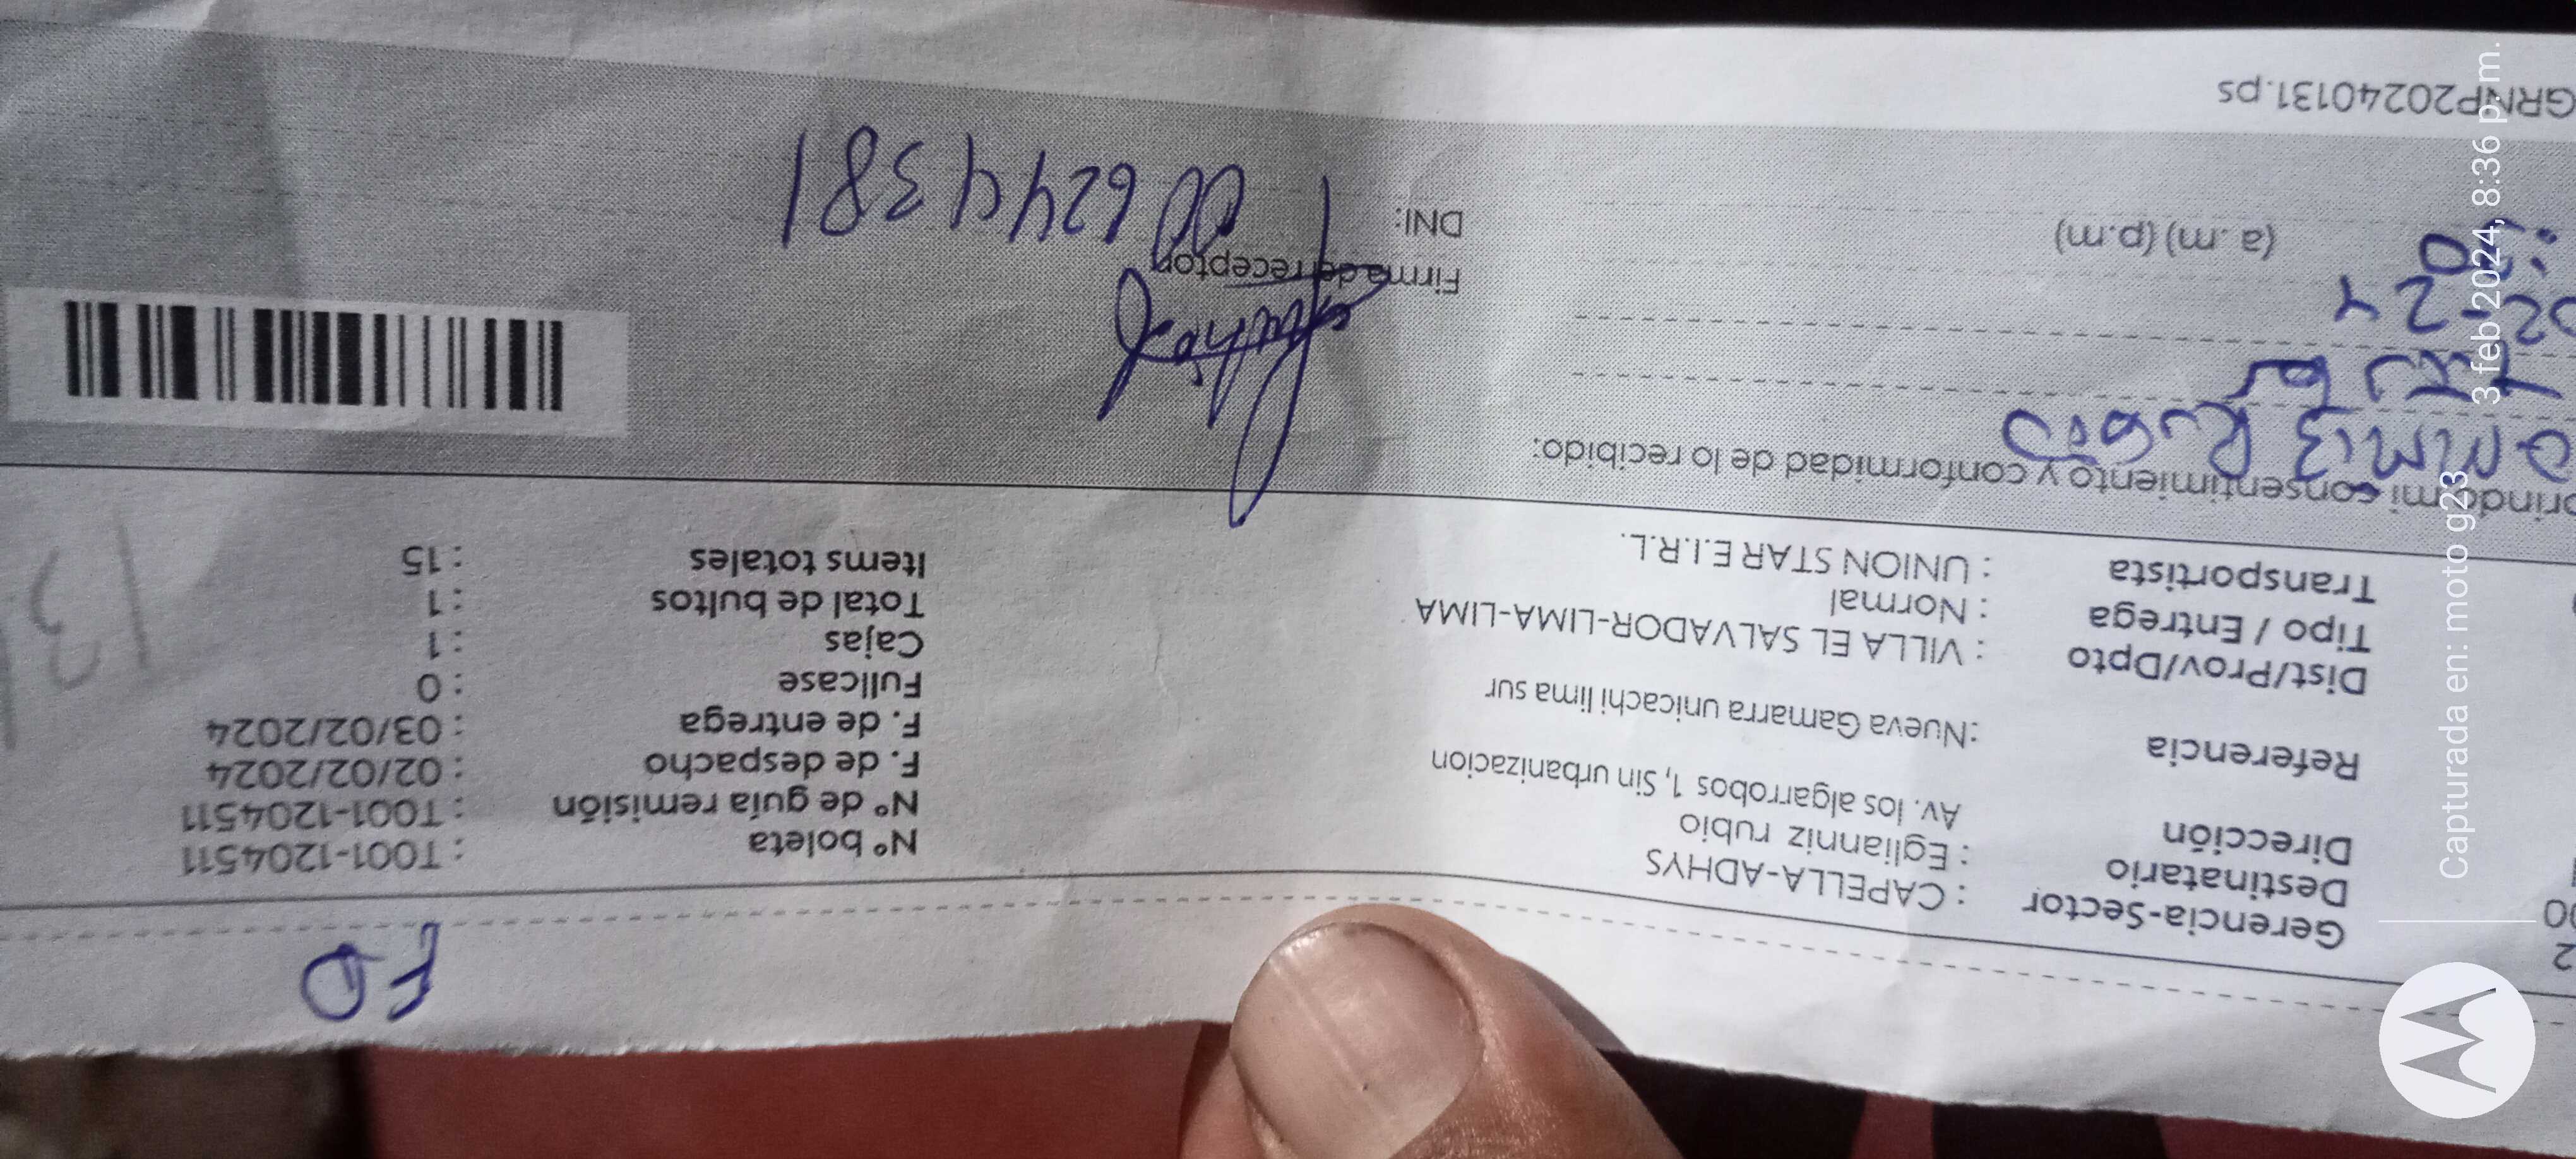 FD
Gerencia-Sector : CAPELLA-ADHYS
Destinatario : Eglianniz rubio
Dirección Av. los algarrobos 1, Sin urbanizacion
Referencia :Nueva Gamarra unicachi lima sur
Dist/Prov/Dpto : VILLA EL SALVADOR-LIMA-LIMA
Tipo / Entrega : Normal
Transportista : UNION STAR E.I.R.L.
N° boleta : T001-1204511
N° de guía remisión : T001-1204511
F. de despacho : 02/02/2024
F. de entrega : 03/02/2024
Fullcase : 0
Cajas : 1
Total de bultos : 1
Items totales : 15
13
mi consentimiento y conformidad de lo recibido:
Rubio
02-24
(a .m) (p.m)
Firma de receptor
DNI: 006244381
GRNP20240131.ps
Capturada en: moto g23
3 feb 2024, 8:36 p. m.